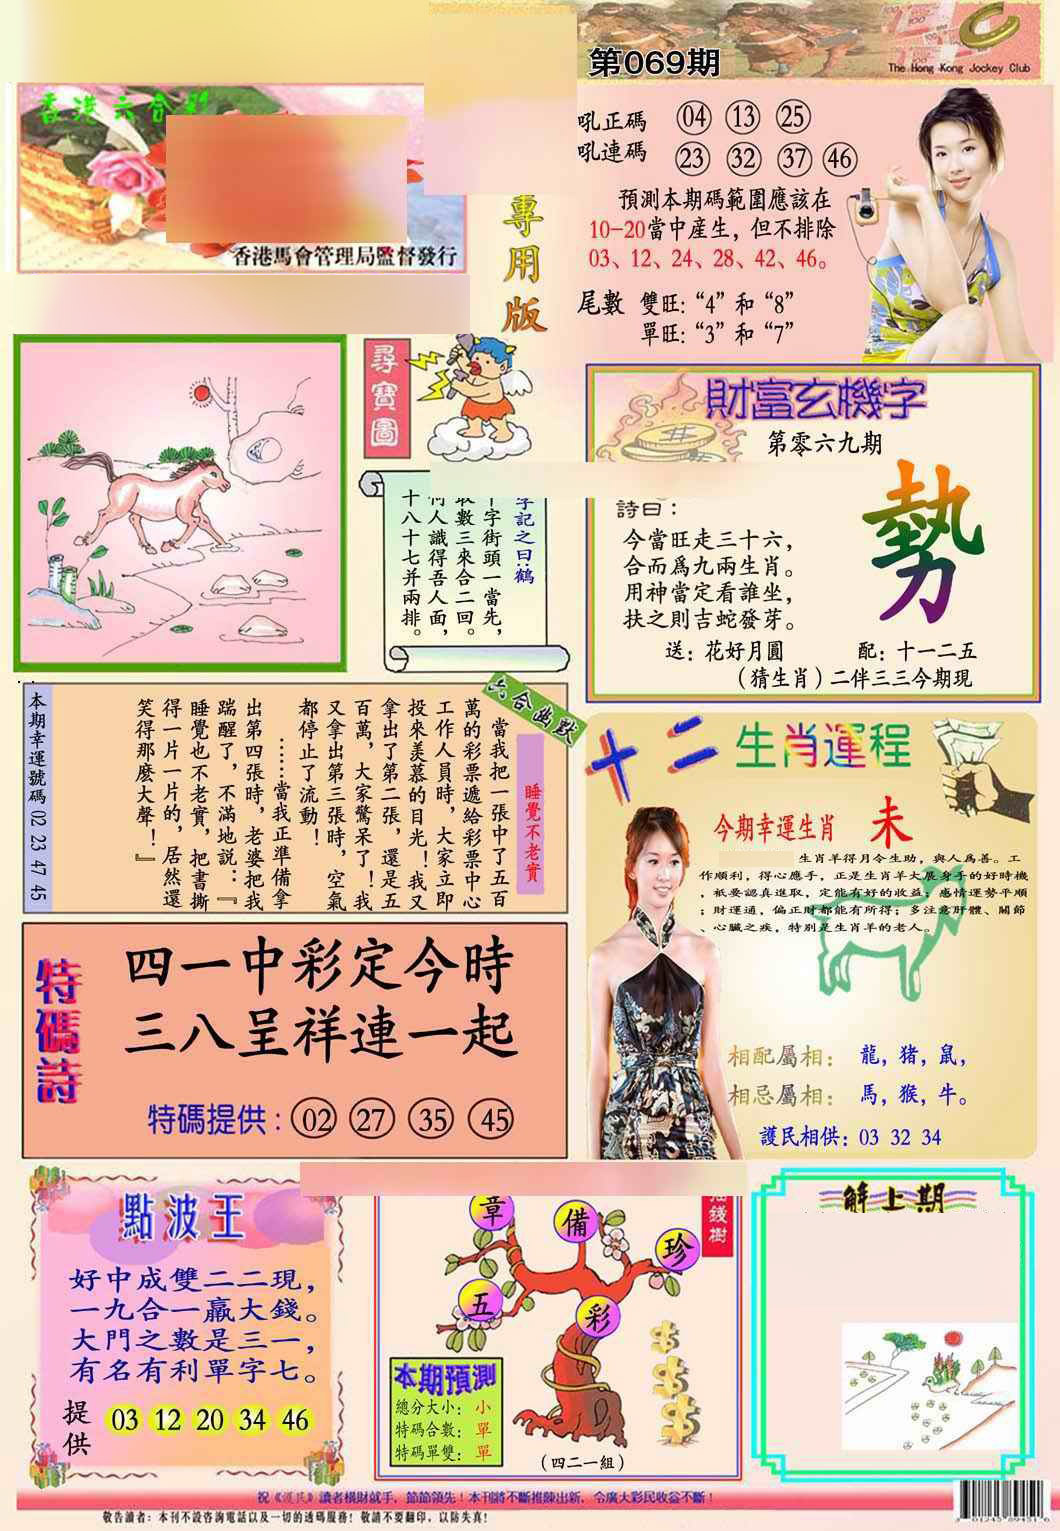 第069期
The Hong Kong Jockey Club
香港六合彩
香港馬會管理局監督發行
專用版
吼正碼 04 13 25
吼連碼 23 32 37 46
預測本期碼範圍應該在
10-20當中産生，但不排除
03、12、24、28、42、46。
尾數 雙旺:“4”和“8”
單旺:“3”和“7”
尋寶圖
字記之曰:鶴
十字街頭一當先，
取數三來合二回。
何人識得吾人面，
十八十七并兩排。
財富玄機字
第零六九期
勢
詩曰：
今當旺走三十六，
合而爲九兩生肖。
用神當定看誰坐，
扶之則吉蛇發芽。
送：花好月圓 配：十一二五
（猜生肖）二伴三三今期現
六合幽默
睡覺不老實
當我把一張中了五百
萬的彩票遞給彩票中心
工作人員時，大家立即
投來羡慕的目光！我又
拿出了第二張，還是五
百萬，大家驚呆了！我
又拿出第三張時，空氣
都停止了流動！
……當我正準備拿
出第四張時，老婆把我
踹醒了，不滿地説：『
睡覺也不老實，把書撕
得一片一片的，居然還
笑得那麼大聲！』
本期幸運號碼 02 23 47 45
十二生肖運程
今期幸運生肖 未
生肖羊得月令生助，與人爲善。工
作順利，得心應手，正是生肖羊大展身手的好時機
，衹要認真進取，定能有好的收益；感情運勢平順
；財運通，偏正財都能有所得；多注意肝體、關節
、心臟之疾，特别是生肖羊的老人。
相配屬相：龍，猪，鼠，
相忌屬相：馬，猴，牛。
護民相供：03 32 34
特碼詩
四一中彩定今時
三八呈祥連一起
特碼提供：02 27 35 45
點波王
好中成雙二二現，
一九合一贏大錢。
大門之數是三一，
有名有利單字七。
提供 03 12 20 34 46
搖錢樹
章
備
珍
五
彩
本期預測
總分大小：小
特碼合數：單
特碼單雙：單
（四二一組）
解上期
祝《護民》讀者橫財就手，節節領先！本刊將不斷推陳出新，令廣大彩民收益不斷！
敬告讀者：本刊不設咨詢電話以及一切的透碼服務！敬請不要翻印，以防失真！